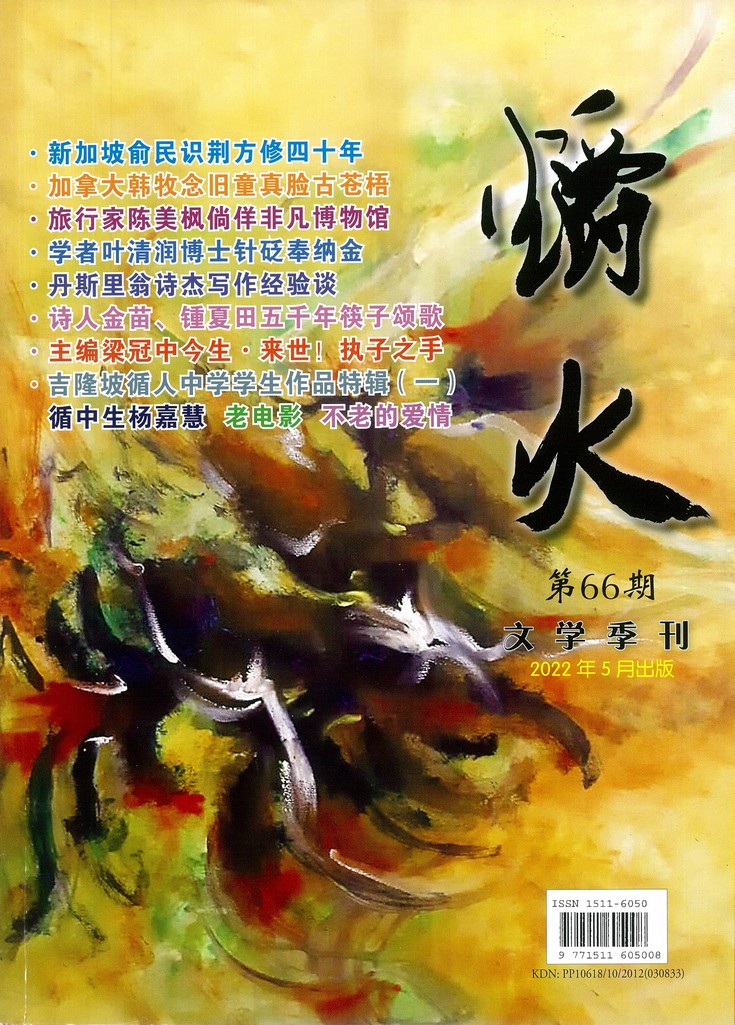 · 新加坡俞民识荆方修四十年
· 加拿大韩牧念旧童真脸古苍梧
· 旅行家陈美枫倘佯非凡博物馆
· 学者叶清润博士针砭奉纳金
· 丹斯里翁诗杰写作经验谈
· 诗人金苗、锺夏田五千年筷子颂歌
· 主编梁冠中今生·来世！执子之手
· 吉隆坡循人中学学生作品特辑（一）
循中生杨嘉慧 老电影 不老的爱情
爝火
第66期
文学季刊
2022年5月出版
ISSN 1511-6050
9 771511 605008
KDN: PP10618/10/2012(030833)